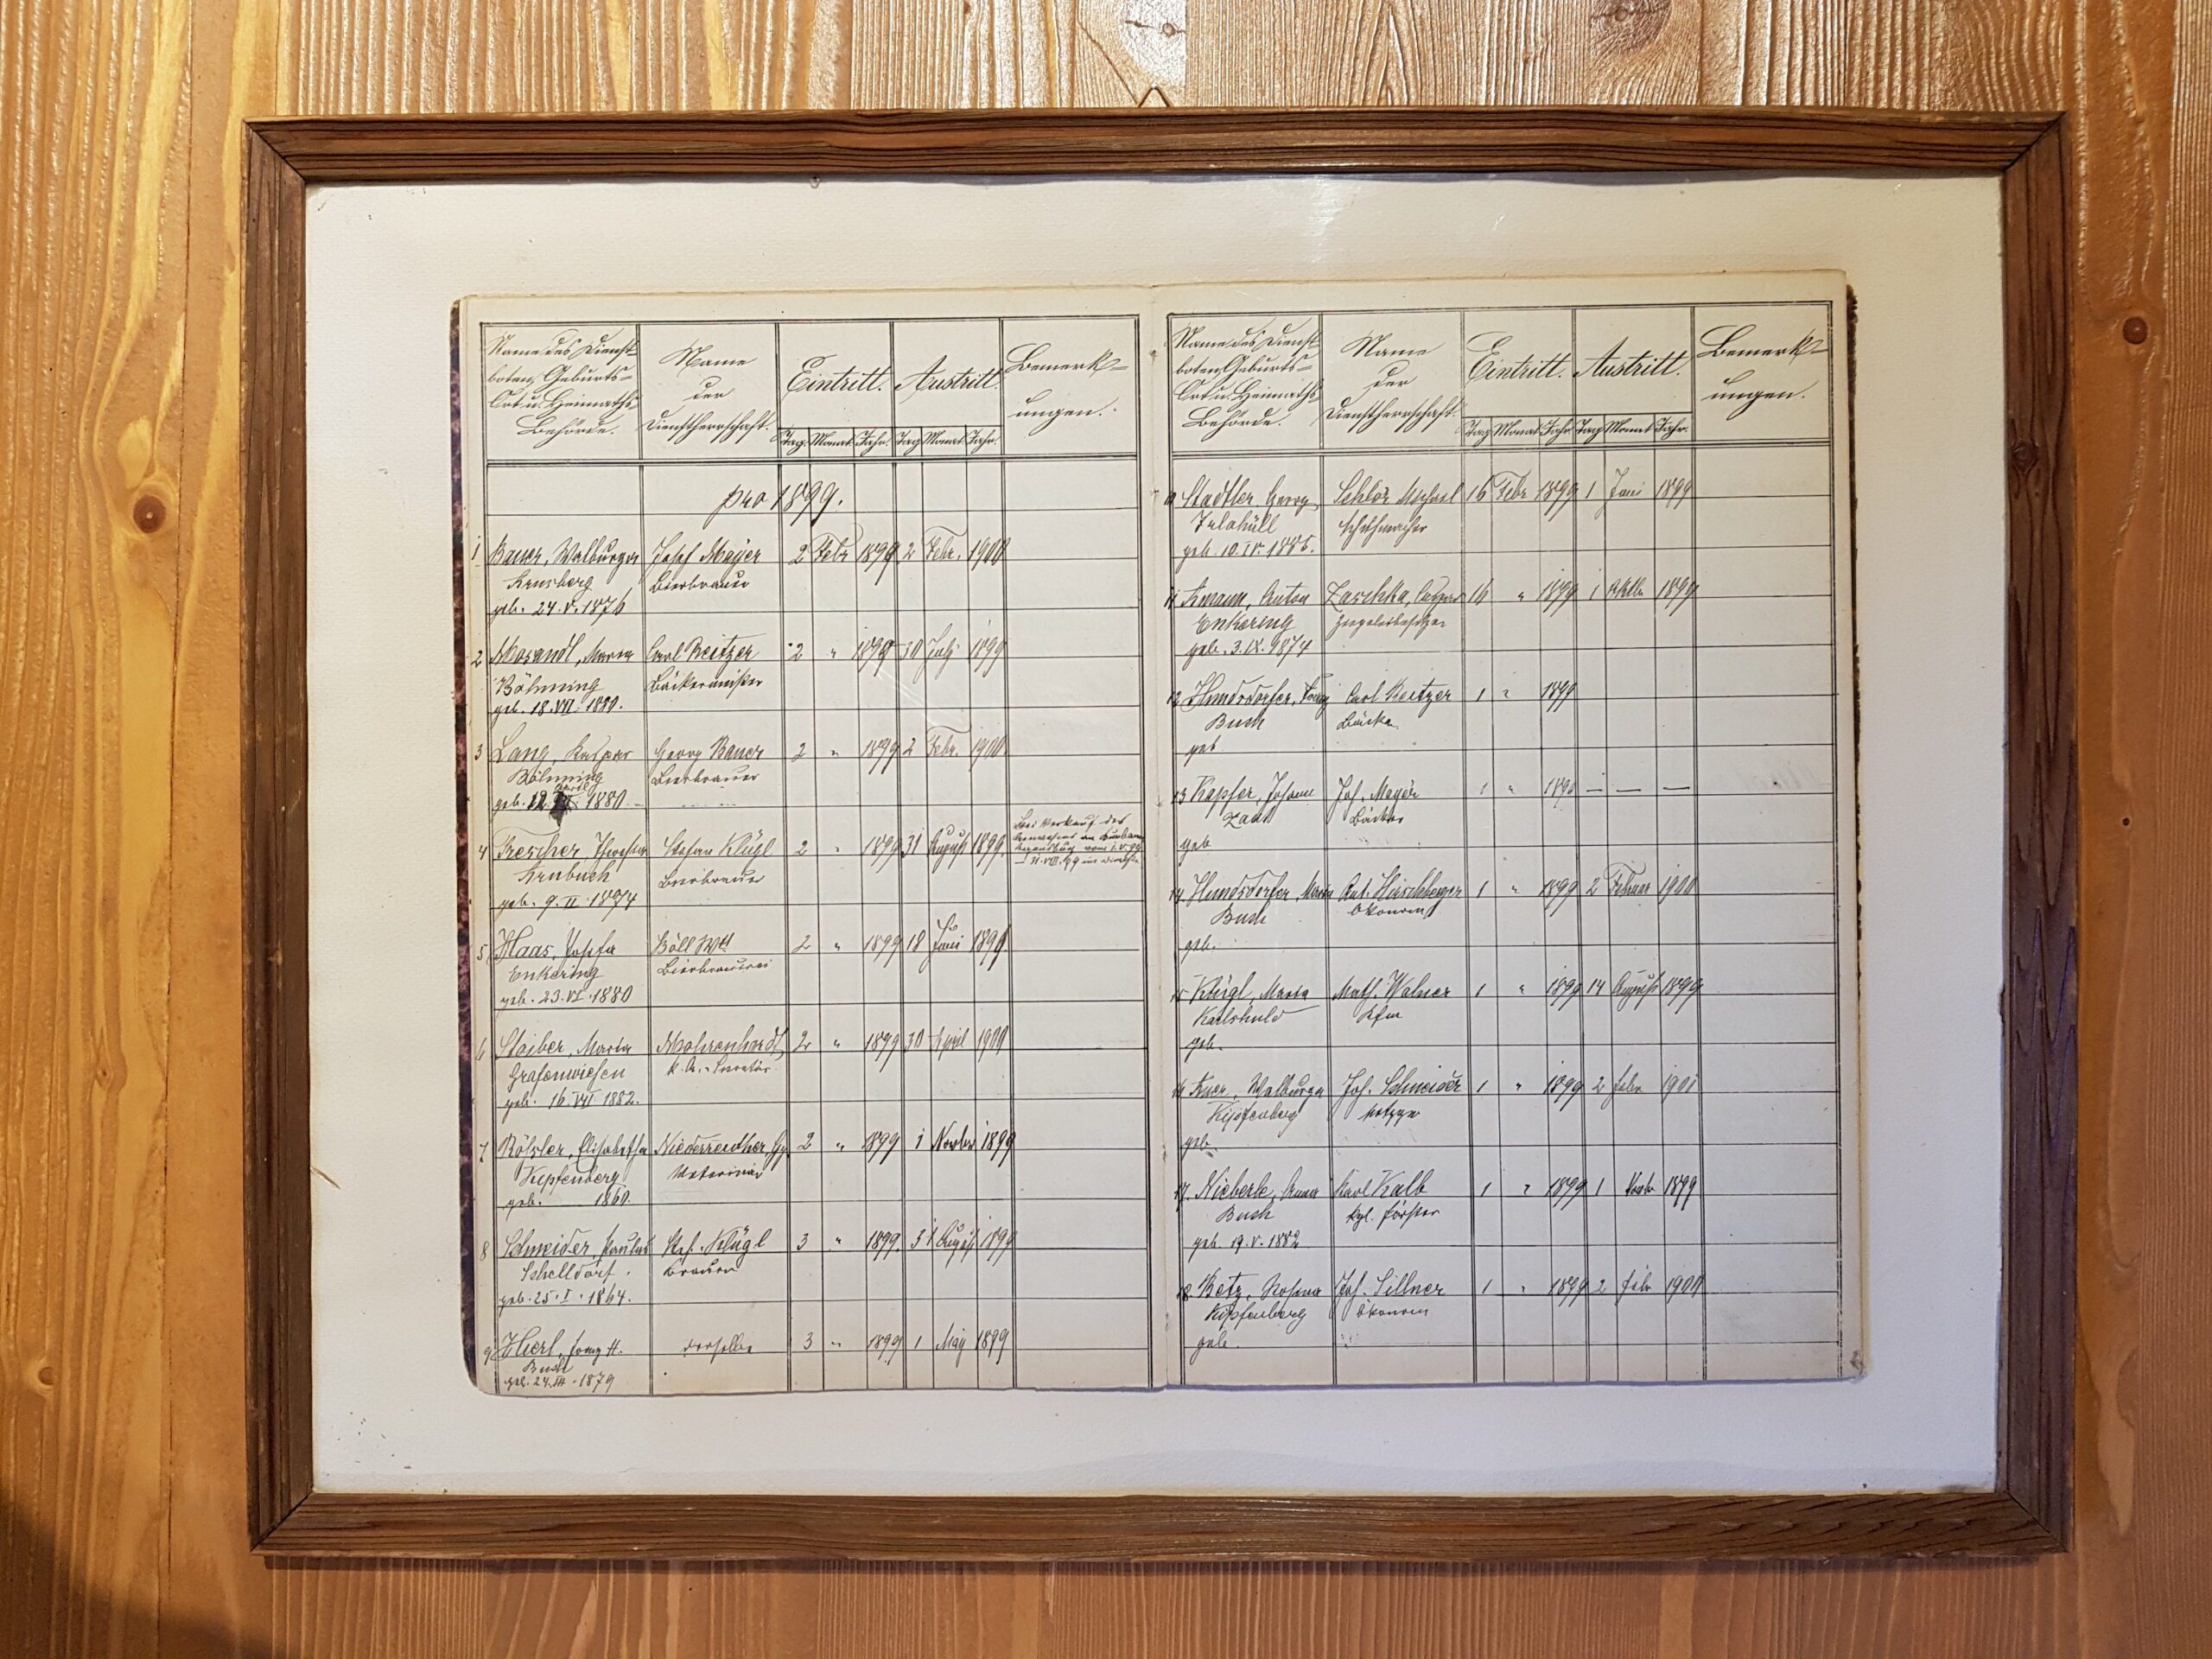 Name des Dienst-
boten, Geburts-
Ort u. Heimaths-
Behörde.
Name
der
Dienstherrschaft.
Eintritt.
Austritt.
Bemerk-
ungen.
Tag. Monat. Jahr. Tag Monat Jahr.
pro 1899.
1 Bauer, Walburga Josef Mayer 2 Febr 1899 2 Febr. 1900
Arnsberg Bierbrauer
geb. 24.V.1876
2 Mosandl, Maria Carl Reitzer 2 " 1899 30 July 1899
Böhming Bäckermeister
geb. 18.VII.1880.
3 Lang, Kaspar Georg Bauer 2 " 1899 2 Febr. 1900
Böhming Bierbrauer
geb. 12. 1880
4 Trescher, Stefan Klügl 2 " 1899 31 August 1899
Bierbrauer
geb. 9.II.1874
5 Haas, Josefa Böll 2 " 1899 18 Juni 1899
Enkering Bierbrauerei
geb. 23.VI.1880
6 Stoiber, Maria 2 " 1899 30 April 1900
Grafenwiesen
geb. 16.VII 1882.
7 Elisabetha Niederreuther, Gg. 2 " 1899 1 Novbr 1899
Kipfenberg Veterinär
geb. 1860.
8 Schneider, Paulus Stef. Klügl 3 " 1899. 31 August 1899
Schelldorf. Brauer
geb. 25.I.1864.
9 derselbe 3 " 1899 1 May 1899
Buch
geb. 24.III.1879
Name des Dienst-
boten, Geburts-
Ort u. Heimaths-
Behörde.
Name
der
Dienstherrschaft.
Eintritt.
Austritt.
Bemerk-
ungen.
Tag Monat Jahr Tag Monat Jahr.
10 Stadtler, Georg Schlör Michael 16 Febr 1899 1 Juni 1899
Irlahüll Schuhmacher
geb. 10.IV.1885.
11 Anton Zaschka, 16 " 1899 1 Oktbr 1899
Enkering Ziegeleibesitzer
geb. 3.IX.1874
12 Hundsdorfer, Carl Reitzer 1 " 1899
Buch Bäcker
geb
13 Kapfer, Johann Joh. Mayer 1 " 1899 — — —
Zandt Bäcker
geb
14. Hundsdorfer, Maria Ant. Hirschberger 1 " 1899 2 Februar 1900
Buch Ökonom
geb.
15 Klügl, Maria Math. Walner 1 " 1899 14 August 1899
Karlshuld Kfm
geb.
16 Auer, Walburga Joh. Schneider 1 " 1899 2 Febr 1901
Kipfenberg Metzger
geb.
17. Nieberle, Anna Karl Kalb 1 " 1899 1 Novbr 1899
Buch kgl. Förster
geb. 19.V.1882
18. Betz, Joh. Sillner 1 " 1899 2 Febr 1900
Kipfenberg Ökonom
geb.